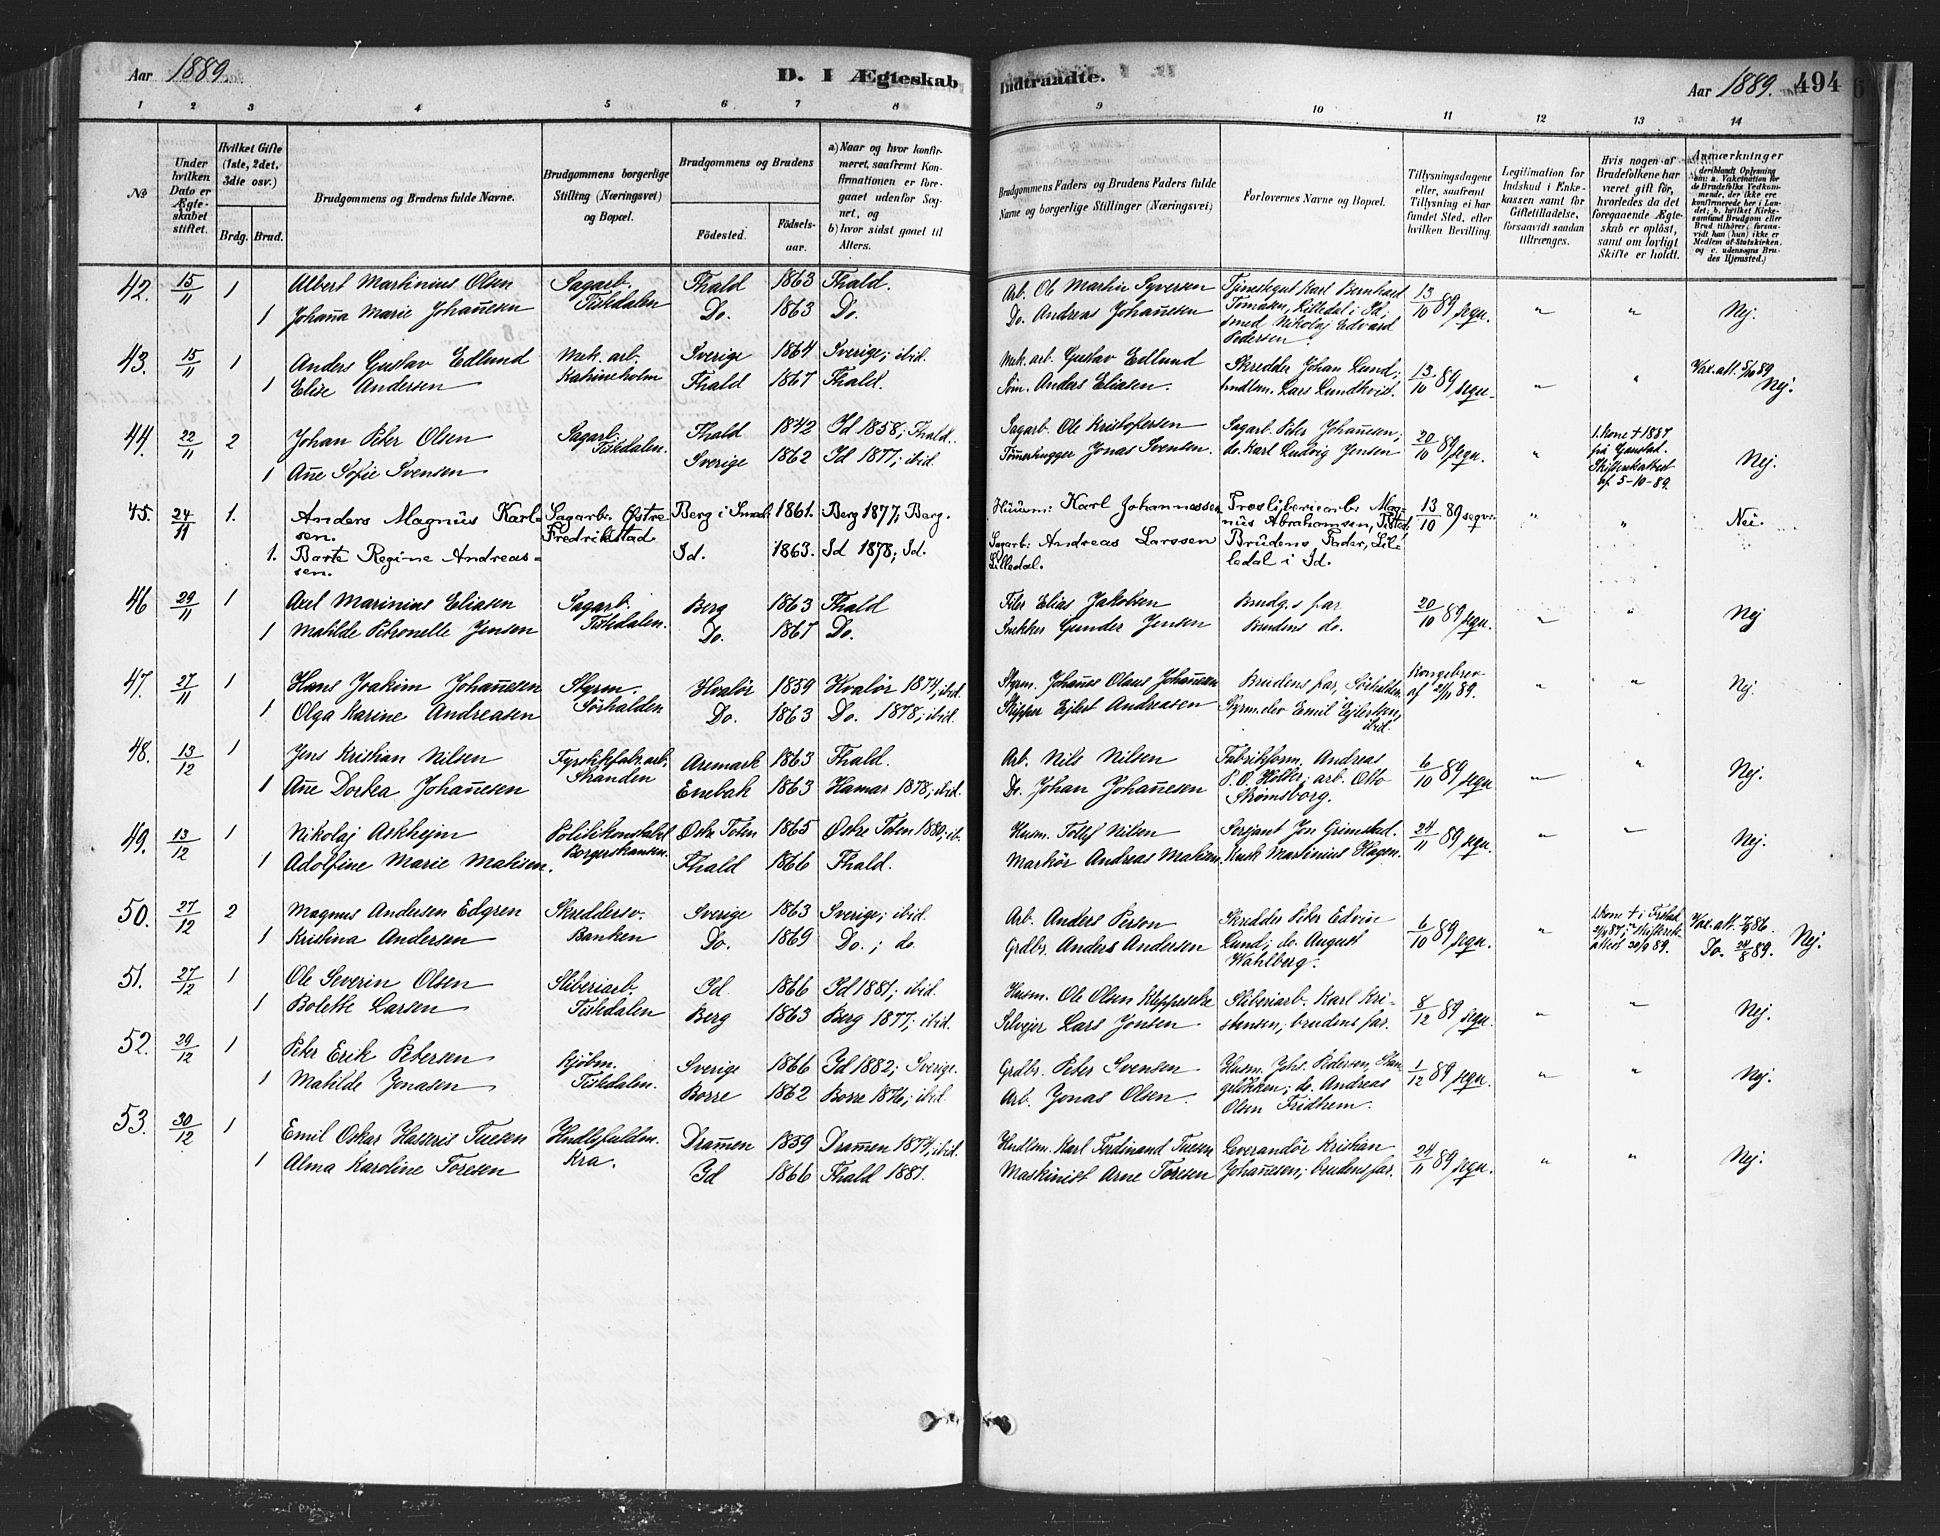 Aar 1889.
D. I Ægteskab
Indtraadte.
Aar 1889. 494
1 2 3 4 5 6 7 8 9 10 11 12 13 14
№
Under hvilken Dato er Ægteskabet stiftet.
Hvilket Gifte (1ste, 2det, 3die osv.)
Brdg. Brud.
Brudgommens og Brudens fulde Navne.
Brudgommens borgerlige Stilling (Næringsvei) og Bopæl.
Brudgommens og Brudens
Fødested. Fødselsaar.
a) Naar og hvor konfirmeret, saafremt Konfirmationen er foregaaet udenfor Sognet, og b) hvor sidst gaaet til Alters.
Brudgommens Faders og Brudens Faders fulde Navne og borgerlige Stillinger (Næringsvei)
Forlovernes Navne og Bopæl.
Tillysningsdagene eller, saafremt Tillysning ei har fundet Sted, efter hvilken Bevilling.
Legitimation for Indskud i Enkekassen samt for Giftetilladelse, forsaavidt saadan tiltrænges.
Hvis nogen af Brudefolkene har været gift før, hvorledes da det foregaaende Ægteskab er opløst, samt om lovligt Skifte er holdt.
Anmærkninger (deriblandt Oplysning om: a. Vakcination for de Brudefolks Vedkommende, der ikke ere konfirmerede her i Landet; b. hvilket Kirkesamfund Brudgom eller Brud tilhører, forsaavidt han (hun) ikke er Medlem af Statskirken. og c. udensogns Brudes Hjemsted.)
42. 15/11 1 Albert Martinius Olsen Sagarb. Fhald 1863 Fhald. Arb. Ole Martin Syversen Tjenestegut Karl Bernhard 13/10 89 sequ. " " Nej.
1 Johaña Marie Johañesen Tistedalen Do. 1863 Do. Do. Andreas Johañesen Tomasen, Lilledal i Id;
smed Nikolaj Edvard
Pedersen.
43. 15/11 1 Anders Gustav Edlund Mek. arb. Sverige 1864 Sverige; ibid. Mek. arb. Gustav Edlund Skredder Johan Lund; 13/10 89 sequ. " " Vax. att. 5/10 89
1 Elise Andersen Katrineholm Fhald 1867 Fhald. Søm. Anders Eliasen. hndlsm. Lars Lundkvist. Nej.
44. 22/11 2 Johan Peter Olsen Sagarb. Fhald 1842 Id 1858; Fhald. Sagarb. Ole Kristofersen Sagarb. Peter Johañesen; 20/10 89 sequ. " 1. kone † 1887
1 Añe Sofie Svensen Tistedalen. Sverige 1862 Id 1877; ibid. Tømmerhugger Jonas Svensen. do. Karl Ludvig Jensen på Gaustad. Nej.
Skifteretsattest
af 5-10-89.
45. 24/11 1. Anders Magnus Karl- Sagarb. Østre Berg i Smaal. 1861. Berg 1877; Berg. Husm. Karl Johannessen Træsliberiarb. Mag- 13/10 89 sequ. " " Nei.
sen. Fredrikstad nus Abrahamsen, Tistedl.
1. Barte Regine Andreas- Id. 1863. Id 1878; Id. Sagarb. Andreas Larssen Brudens Fader, Lil-
sen. Lilledal. ledal i Id.
46 29/11 1 Axel Marinius Eliasen Sagarb. Berg 1863 Fhald Filer Elias Jakobsen Brudg.s far 20/10 89 sequ. " " Nej
1 Matilde Petronelle Jensen Tistedalen. Do. 1867 Do. Snekker Gunder Jensen Brudens do.
47. 27/11 1 Hans Joakim Johañesen Styrm. Hvalør 1859 Hvalør 1874; ibid. Styrm. Johañes Olaus Johañesen Brudens far, Sørhalden Kongebrev " " Nej.
1 Olga Karine Andreasen Sørhalden Do. 1863 Do. 1878; ibid. Skipper Ejlert Andreasen Styrm.elev Emil Ejlertsen, af 21/11 89.
ibid.
48. 13/12 1 Jens Kristian Nilsen Fyrstikkfabk.arb. Aremark 1863 Fhald. Arb. Nils Nilsen Fabrikform. Andreas 6/10 89 sequ. " " Nej.
1 Añe Dortea Johañesen Stranden Enebak 1863 Hamar 1878; ibid. Do. Johan Johañesen P. O. Holter; arb. Otto
Strømsborg.
49. 13/12 1 Nikolaj Askhejm Politikonstabel Østre Toten 1865 Østre Toten 1880; ib. Husm. Tollef Nilsen Serjant Jon Grimstad. 24/11 89 sequ. " " Nej.
1 Adolfine Marie Matisen. Borgerskansen. Fhald 1866 Fhald. Markør Andreas Matisen. Kusk Martinius Hagen.
50. 27/12 2 Magnus Andersen Edgren Skreddersv. Sverige 1863 Sverige; ibid. Arb. Anders Person Skredder Peter Edvin 6/10 89 sequ. " 1.kone † i Frstad
1 Kristina Andersen Banken Do. 1869 Do.; do. Grdbr. Anders Andersen Lund; do. August Vax. att. 86. Nej.
Wahlberg. attest 30/9 89. Do. 24/8 89.
51. 27/12 1 Ole Severin Olsen Sliberiarb. Id 1866 Id 1881; ibid. Husm. Ole Olsen Sliberiarb. Karl Kri- 8/12 89 sequ. " " Nej.
1 Bolette Larsen Tistedalen Berg 1863 Berg 1877; ibid. Selvejer Lars Jonsen stensen; brudens far.
52. 29/12 1 Peter Erik Petersen Kjøbm. Sverige 1866 Id 1882; Sverige. Grdbr. Peter Svensen Husm. Johs. Pedersen, Stan- 1/12 89 sequ. " " Nej.
1 Matilde Jonasen Tistedalen. Borre 1862 Borre 1876; ibid. Arb. Jonas Olsen. geløkken; do. Andreas
Olsen Fridhem.
53. 30/12 1 Emil Oskar Hasseris Tuesen Hndlsfuldm. Drammen 1859 Drammen 1874; ibid. Hndlsm. Karl Ferdinand Tuesen Leverandør Kristian 24/11 89 sequ. " " Nej.
1 Alma Karoline Toresen Kra. Id 1866 Fhald 1881. Maskinist Arne Toresen Johañesen; brudens far.